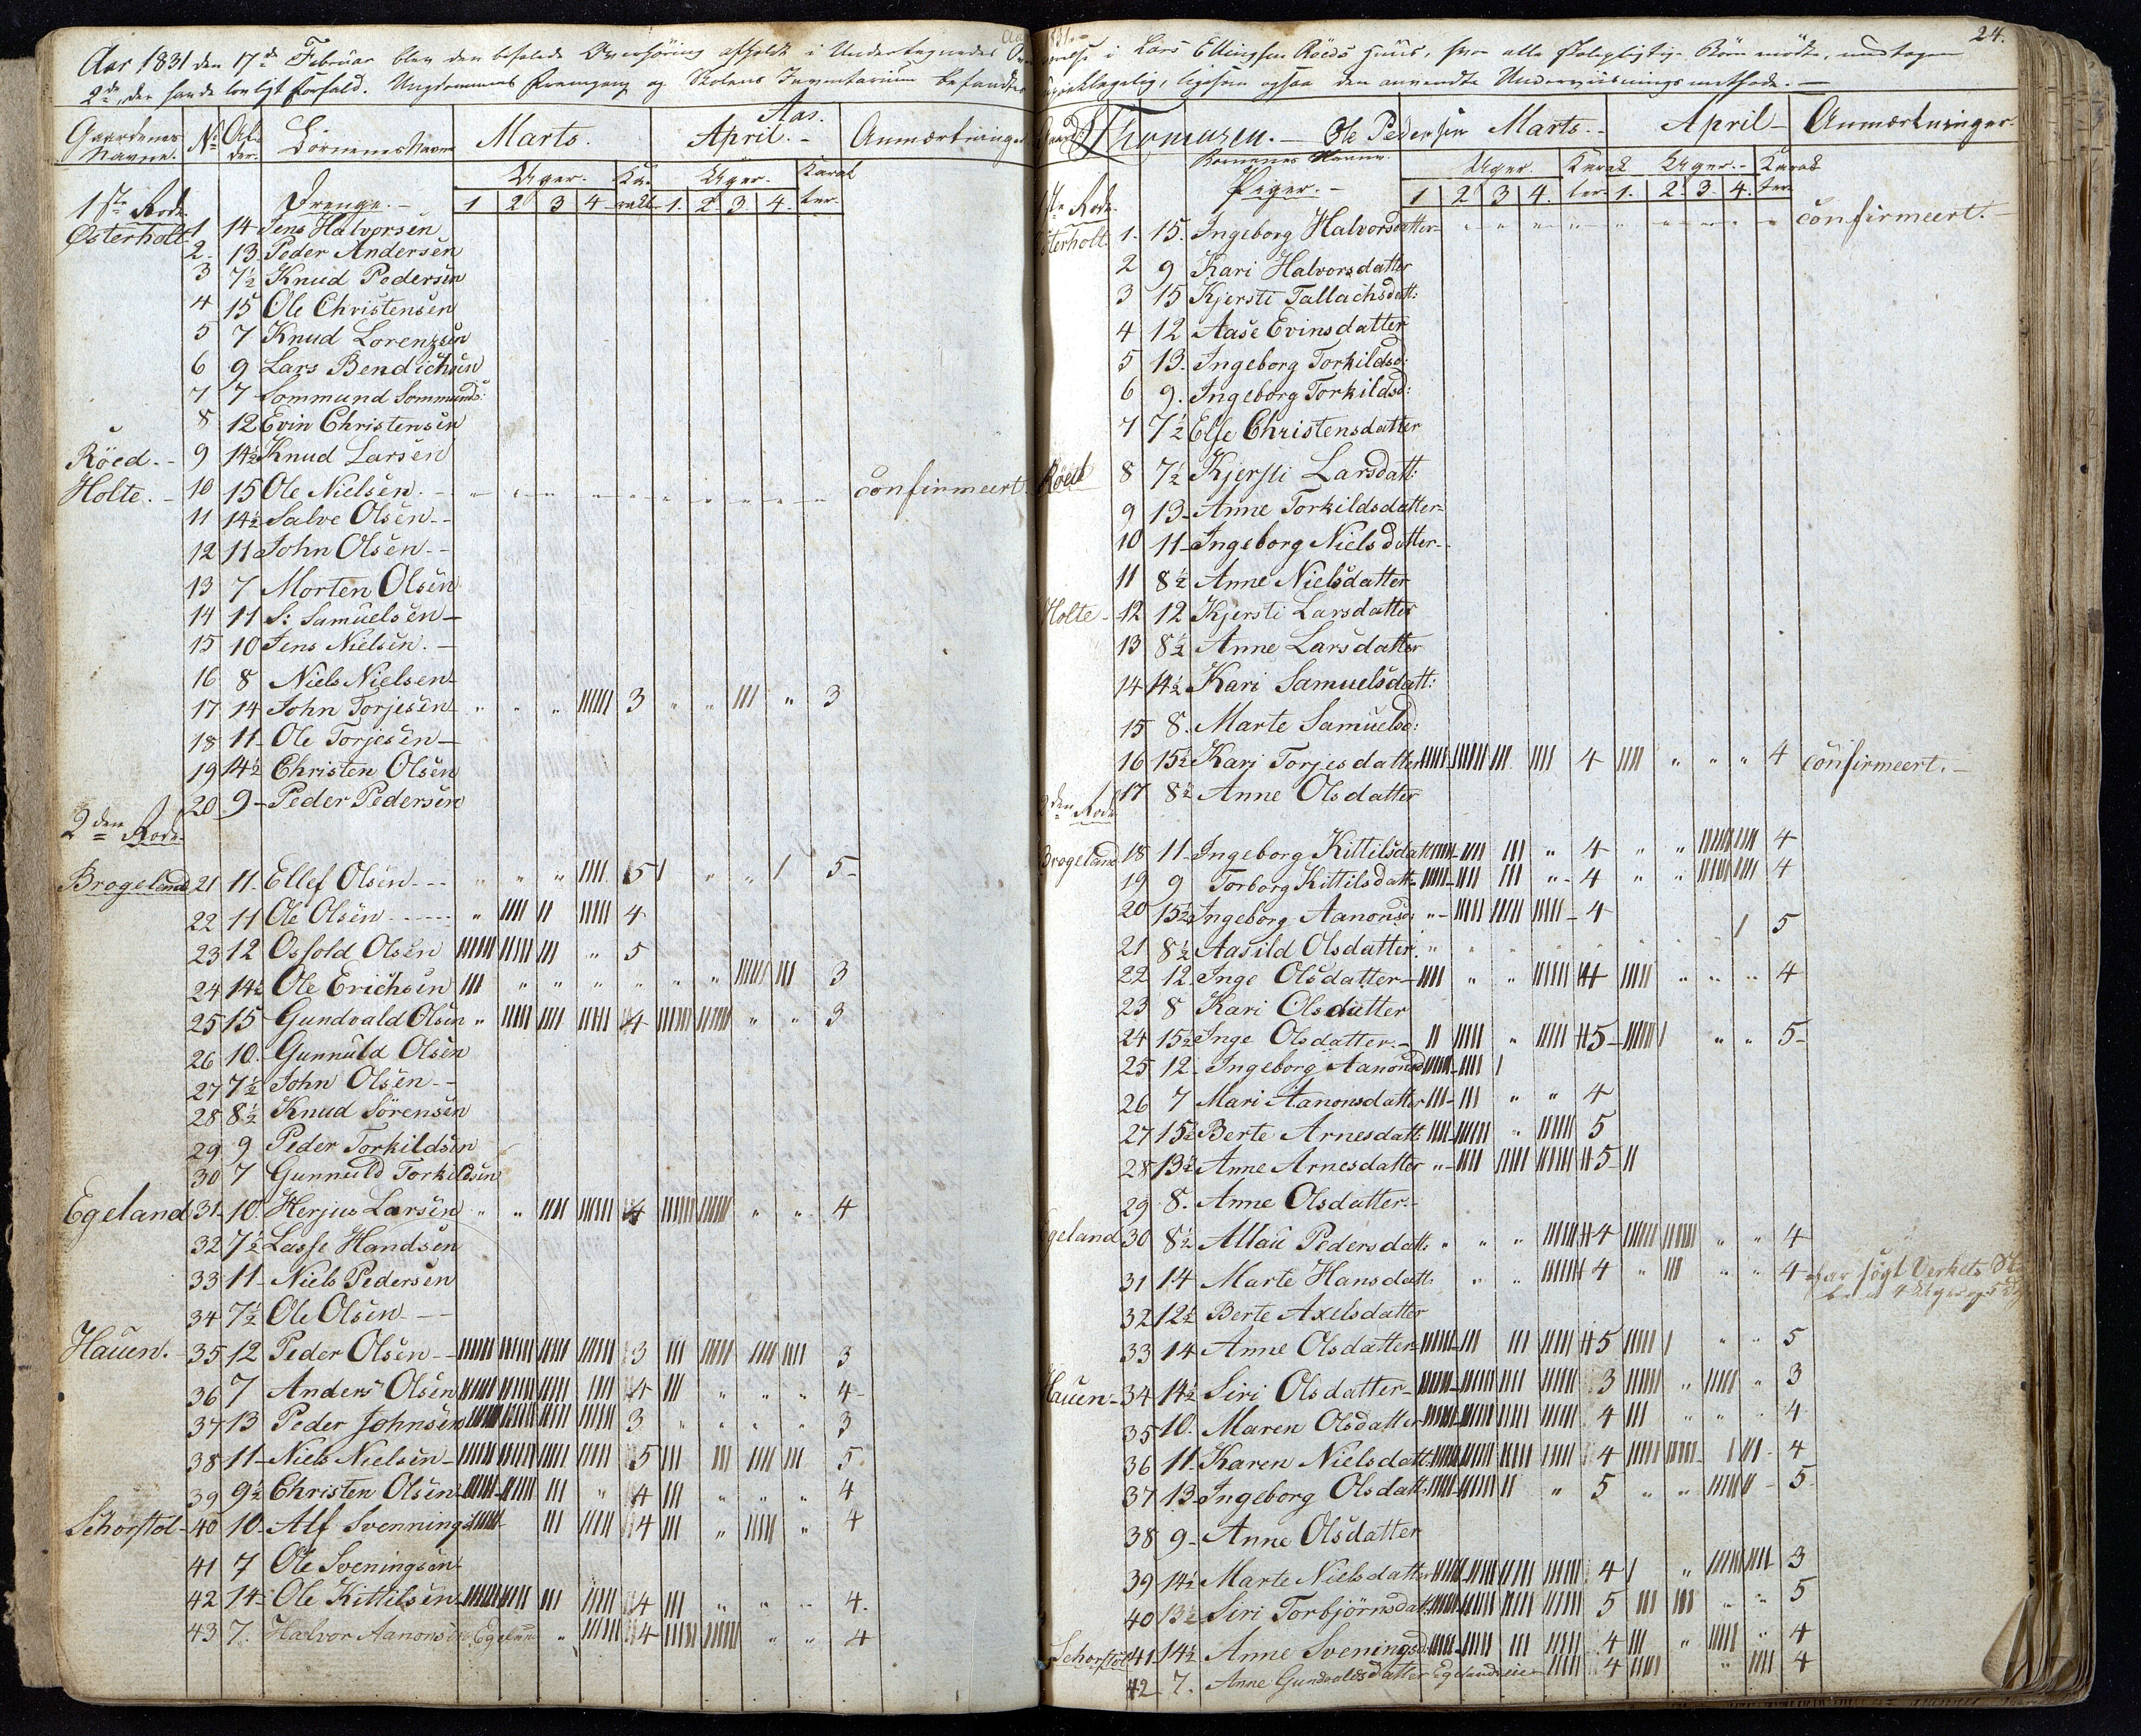 Aar 1831 den 17de Februar blev den befalede Overhøring afholdt i Undertegnedes
2de, der havde lovligt Forfald. Ungdommens Fremgang og Skolens Inventarium befandtes
Gaardenes Navne. No Alder. Börnenes Navne Marts. Aar. April.- Anmærkninger
Uger. Karakt. Uger. Karakter.
Drenge.- 1 2 3 4 1. 2. 3. 4.
1ste Rode.
Østerholt 1 14 Jens Halvorsen
2. 13 Peder Andersen
3 7½ Knud Pedersen
4 15 Ole Christensen
5 7 Knud Lorenzsen
6 9 Lars Bendichsen
7 7 Sommund Sommunds:
8 12 Evin Christensen
Röed.- 9 14½ Knud Larsen
Holte.- 10 15 Ole Nielsen.- confirmeert.
11 14½ Salve Olsen.-
12 11 John Olsen.-
13 7 Morten Olsen
14 11 S: Samuelsen-
15 10 Jens Nielsen.-
16 8 Niels Nielsen
17 14 John Torjesen " " " 3 " " " 3
18 11- Ole Torjesen-
19 14½ Christen Olsen
20 9- Peder Pedersen
2den Rode.
Brogeland 21 11- Ellef Olsen " " " 5 " " 5-
22 11 Ole Olsen " 4
23 12 Osfold Olsen " 5
24 14½ Ole Erichsen " " " " " " 3
25 15 Gundvald Olsen " 4 " " 3
26 10.- Gunnuld Olsen
27 7½ John Olsen.-
28 8½ Knud Sörensen
29 9 Peder Torkildsen
30 7 Gunnuld Torkildsen
Egeland 31 10. Herjus Larsen " " 4 " " 4
32 7½ Lasse Handsen
33 11- Niels Pedersen
34 7½ Ole Olsen.-
Hauen.- 35 12 Peder Olsen 3 3
36 7 Anders Olsen 4 " " " 4-
37 13 Peder Johnsen 3 " " " " 3
38 11- Niels Nielsen 5 5
39 9½ Christen Olsen " 4 " " " 4
Schorstöl- 40 10- Alf Svennings: 4 " " 4
41 7 Ole Sveningsen
42 14- Ole Kittilsen 4 " " " 4.
43 7. Halvor Aanonsen " 4 " " 4
24.
i Lars Ellingsen Röeds Huus, hvor alle skolepligtige Börn mödte, undtagen
ligesom ogsaa den anvendte Underviisningsmethode.-
Thomasen.- Ole Pedersen Marts.- April- Anmærkninger.
Börnenes Navne. Uger. Karakter. Uger.- Karakter
Piger.- 1 2 3 4. 1. 2. 3. 4.
1ste Rode.
Österholt. 1. 15. Ingeborg Halvorsdatter confirmeert.-
2 9 Kari Halvorsdatter
3 15 Kjersti Tallachsdatt:
4 12 Aase Evinsdatter
5 13. Ingeborg Torkildsd:
6 9. Ingeborg Torkildsd:
7 7½ Else Christensdatter
Röed 8 7½ Kjersti Larsdatt:
9 13- Anne Torkildsdatter-
10 11- Ingeborg Nielsdatter-
11 8½ Anne Nielsdatter
Holte- 12 12 Kjersti Larsdatter
13 8½ Anne Larsdatter
14 14½ Kari Samuelsdatt:
15 8. Marte Samuelsd:
16 15½ Kari Torjesdatter 4 " " " 4 confirmeert.-
17 8½ Anne Olsdatter
2den Rode
Brogeland 18 11- Ingeborg Kittilsdatt " 4 " " 4
19 9 Torborg Kittilsdatt: " 4 " " 4
20 15½ Ingeborg Aanonsd: " 4
21 8½ Aasild Olsdatter. 5
22 12. Inge Olsdatter- " " 4 " " " 4
23 8 Kari Olsdatter
24 15½ Inge Olsdatter.- " 5- " " 5-
25 12- Ingeborg Aanonsd
26 7 Mari Aanonsdatter " " 4
27 15½ Berte Arnesdatt: " 5
28 13½ Anne Arnesdatter " 5
29 8. Anne Olsdatter.-
Egeland 30 8½ Allau Pedersdatt: " " " 4 " " 4
31 14 Marte Hansdatt: " " 4 " " " 4 har sögt Verkets
32 12½ Berte Axelsdatter
33 14 Anne Olsdatter 5 " " 5
Hauen- 34 14½ Siri Olsdatter- 3 " " 3
35 10. Maren Olsdatter 4 " " " 4
36 11- Karen Nielsdatt: 4 4
37 13- Ingeborg Olsdatt: " 5 " " 5-
38 9- Anne Olsdatter
39 14½ Marte Nielsdatter 4 " 3
40 13½ Siri Torbjörnsdatt: 5 " " 5
Schorstöl 41 14½ Anne Sveningsd: 4 " " 4
42 7. Anne Gundvaldsdatter 4 " 4